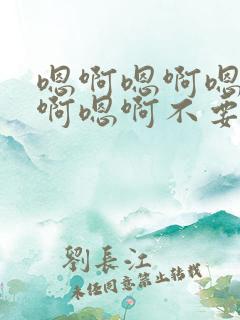 嗯啊嗯啊嗯
啊嗯啊不要
劉長江
未经同意禁止转载